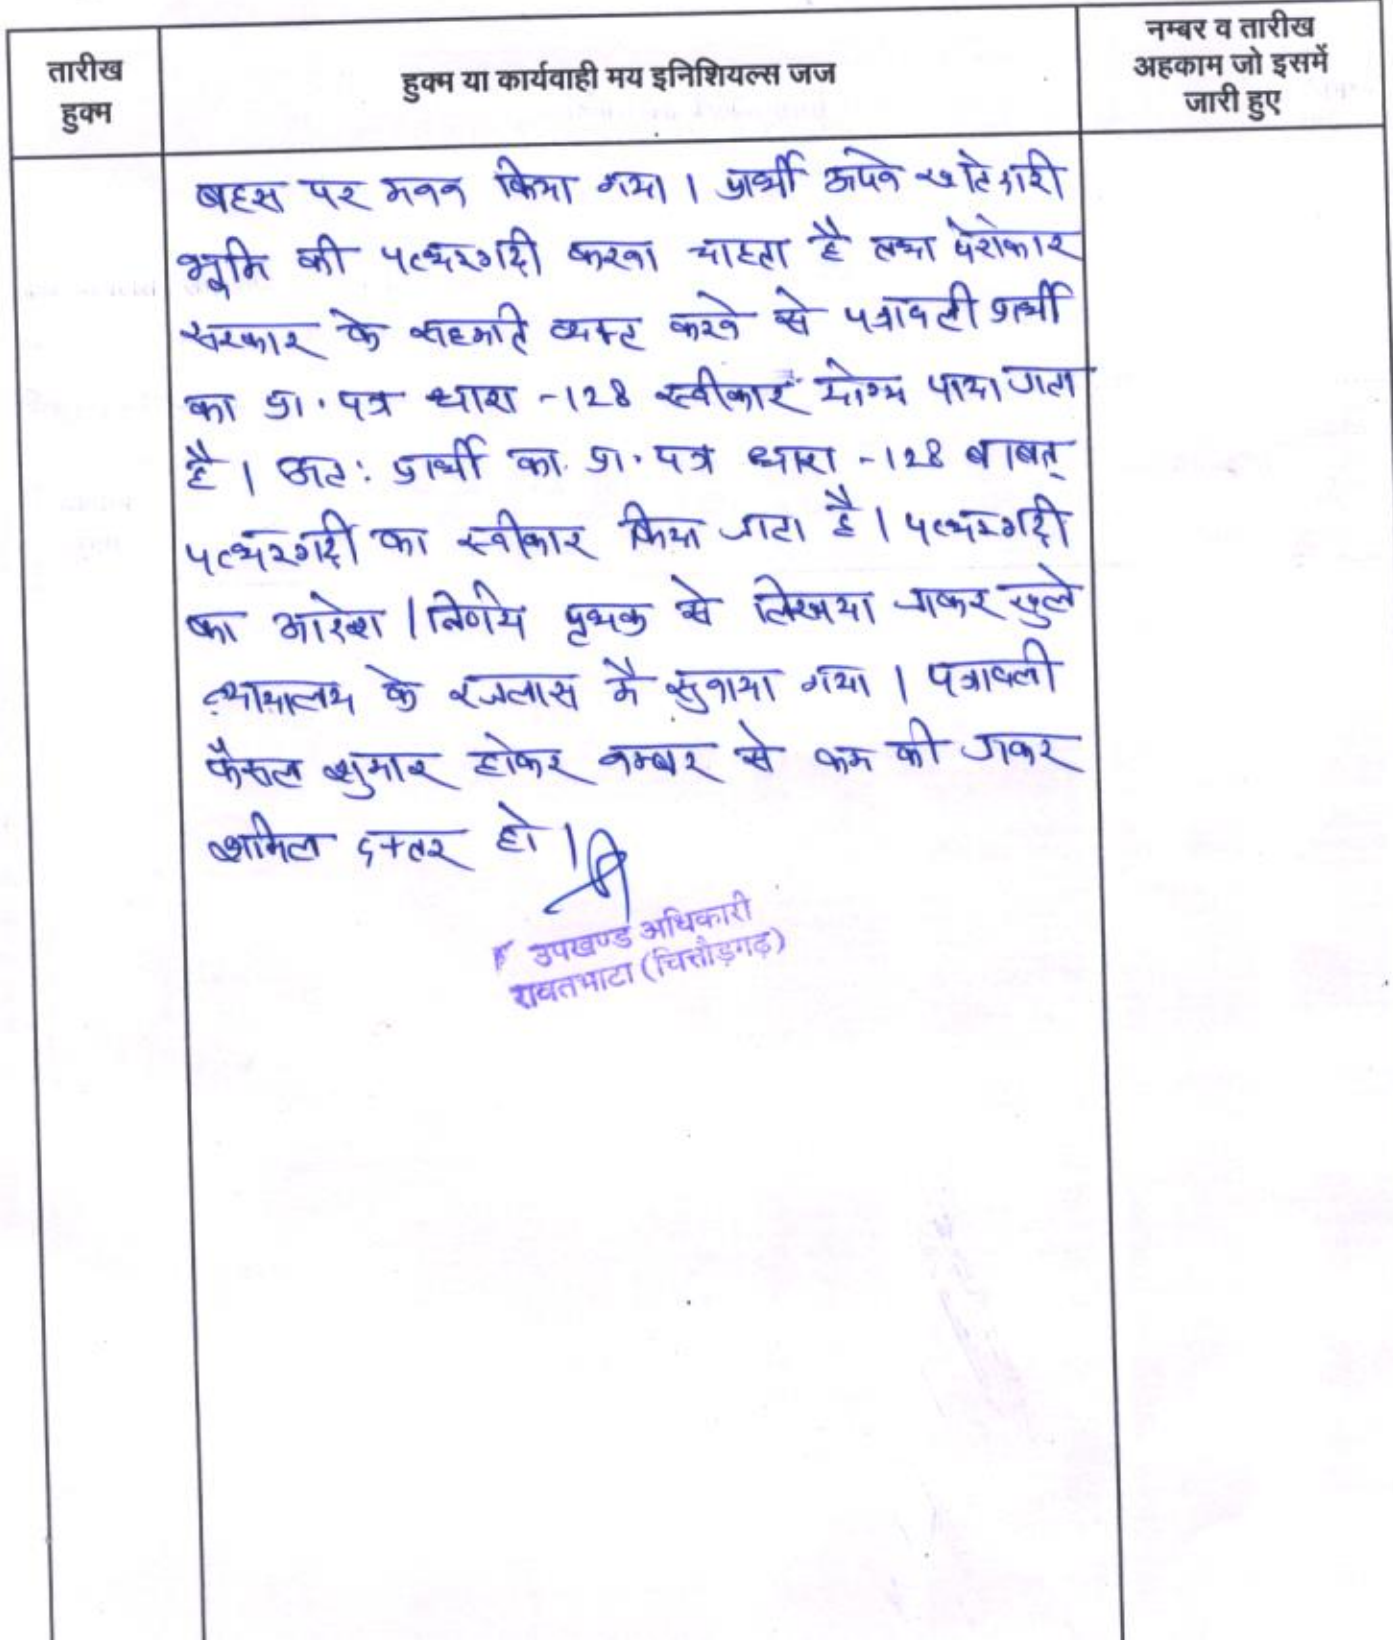 तारीख
हुक्म
हुक्म या कार्यवाही मय इनिशियल्स जज
नम्बर व तारीख
अहकाम जो इसमें
जारी हुए
बहस पर मनन किया गया । प्रार्थी अपने खातेदारी
भूमि की पत्थरगढी करना चाहता है तथा पेरोकार
सरकार के सहमति व्यक्त करने से पत्रावली प्रार्थी
का प्रा. पत्र धारा -128 स्वीकार योग्य पाया जाता
है । अतः प्रार्थी का प्रा. पत्र धारा -128 बाबत्
पत्थरगढी का स्वीकार किया जाता है । पत्थरगढी
का आदेश / निर्णय पृथक से लिखाया जाकर खुले
न्यायालय के इजलास में सुनाया गया । पत्रावली
फैसल शुमार होकर नम्बर से कम की जाकर
शामिल दफ्तर हो ।
उपखण्ड अधिकारी
रावतभाटा (चित्तौड़गढ़)